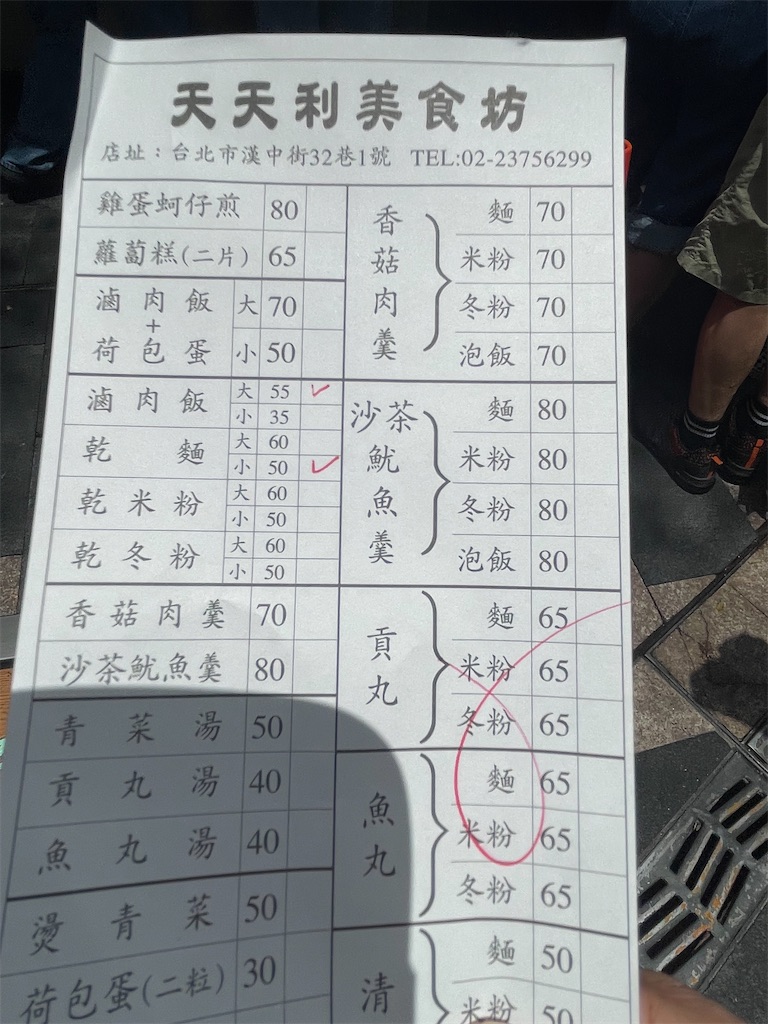 天天利美食坊
店址：台北市漢中街32巷1號 TEL:02-23756299
雞蛋蚵仔煎 80
蘿蔔糕(二片) 65
滷肉飯+荷包蛋 大 70
小 50
滷肉飯 大 55
小 35
乾麵 大 60
小 50
乾米粉 大 60
小 50
乾冬粉 大 60
小 50
香菇肉羹 70
沙茶魷魚羹 80
青菜湯 50
貢丸湯 40
魚丸湯 40
燙青菜 50
荷包蛋(二粒) 30
香菇肉羹 麵 70
米粉 70
冬粉 70
泡飯 70
沙茶魷魚羹 麵 80
米粉 80
冬粉 80
泡飯 80
貢丸 麵 65
米粉 65
冬粉 65
魚丸 麵 65
米粉 65
冬粉 65
清 麵 50
米粉 50